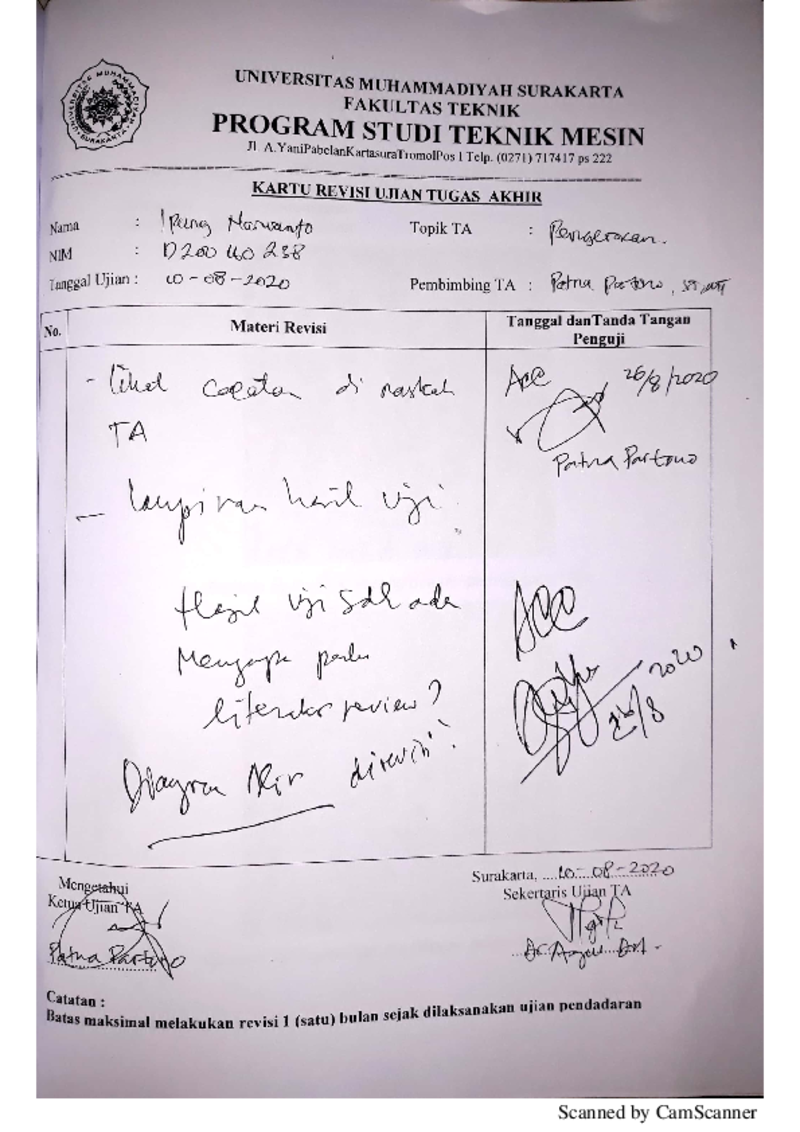 UNIVERSITAS MUHAMMADIYAH SURAKARTA
FAKULTAS TEKNIK
PROGRAM STUDI TEKNIK MESIN
Jl. A.YaniPabelanKartasuraTromolPos 1 Telp. (0271) 717417 ps 222
KARTU REVISI UJIAN TUGAS AKHIR
Nama : Ipung Topik TA : Pengerasan.
NIM : D200 140 238
Tanggal Ujian : 10-08-2020 Pembimbing TA : Patna Partono, ST, MT
No. Materi Revisi Tanggal danTanda Tangan Penguji
- Lihat catatan di naskah Acc 26/8/2020
TA
Patna Partono
- Lampiran hasil uji
Hasil uji Sdh ada Acc
Mengapa perlu
literatur review? 26/8 2020
Diagram Alir direvisi!
Mengetahui Surakarta, 10-08-2020
Ketua Ujian TA Sekertaris Ujian TA
Patna Partono Dr.
Catatan :
Batas maksimal melakukan revisi 1 (satu) bulan sejak dilaksanakan ujian pendadaran
Scanned by CamScanner